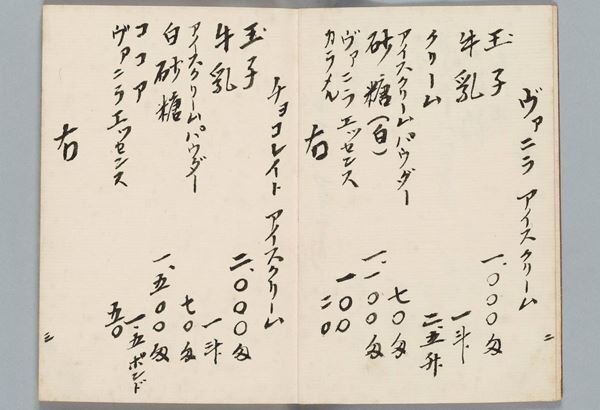 ヴァニラ アイスクリーム
玉子 一、〇〇〇匁
牛乳 一斗
クリーム 二.五升
アイスクリームパウダー 七〇匁
砂糖(白) 一、一〇〇匁
ヴァニラエッセンス 一〇〇
カラメル 二〇
右
二
チョコレイト アイスクリーム
玉子 二、〇〇〇匁
牛乳 一斗
アイスクリームパウダー 七〇匁
白砂糖 一、五〇〇匁
ココア 一.五ポンド
ヴァニラエッセンス 五〇
右
三